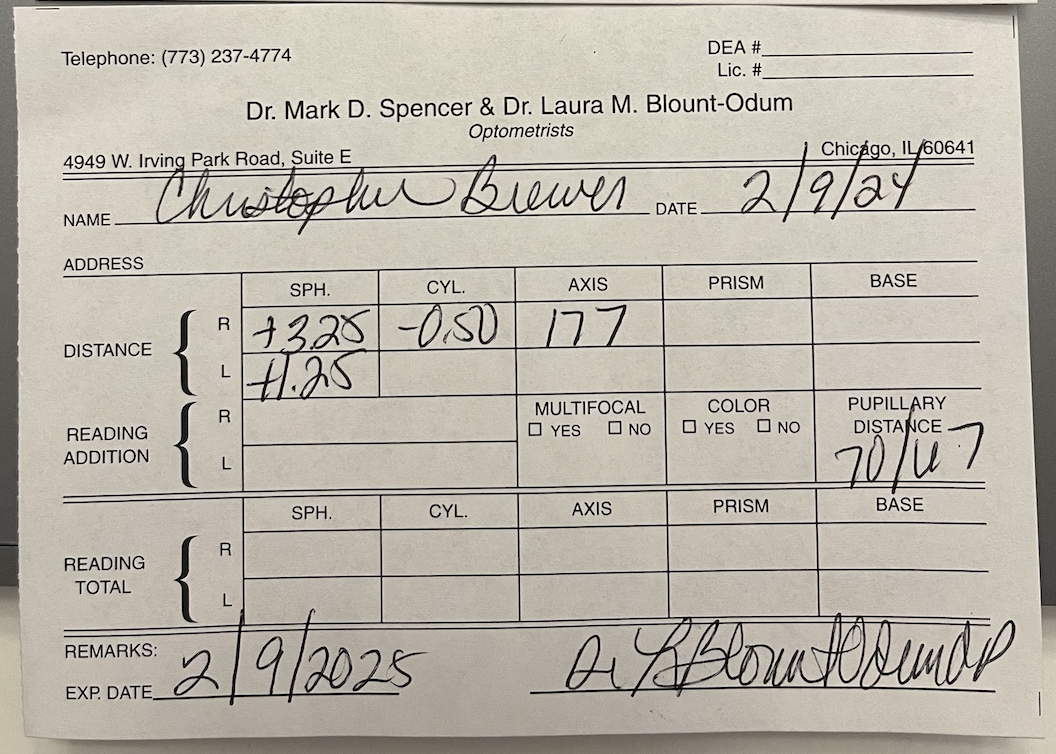 Telephone: (773) 237-4774
DEA #
Lic. #
Dr. Mark D. Spencer & Dr. Laura M. Blount-Odum
Optometrists
4949 W. Irving Park Road, Suite E Chicago, IL 60641
NAME Christopher Brewer DATE 2/9/24
ADDRESS
SPH. CYL. AXIS PRISM BASE
DISTANCE
R +3.25 -0.50 177
L +1.25
READING ADDITION
R
L
MULTIFOCAL
YES NO
COLOR
YES NO
PUPILLARY
DISTANCE
70/67
SPH. CYL. AXIS PRISM BASE
READING
TOTAL
R
L
REMARKS:
EXP. DATE 2/9/2025